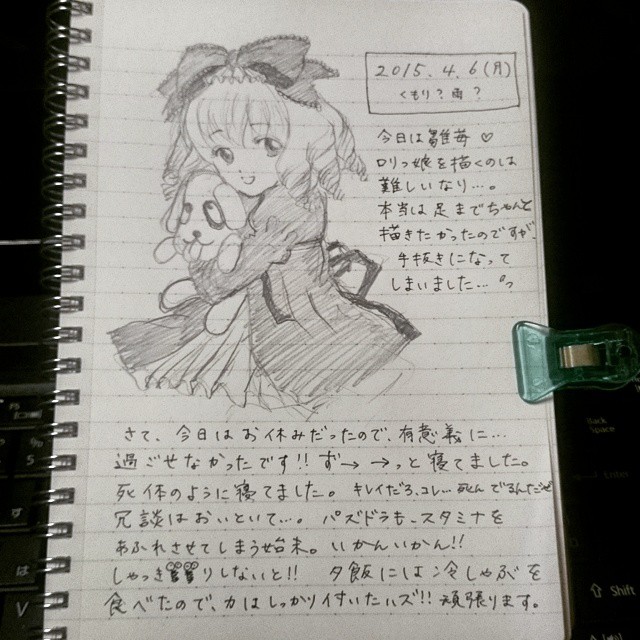 2015.4.6(月)
くもり?雨?
今日は雛苺♡
ロリっ娘を描くのは
難しいなり…。
本当は足までちゃんと
描きたかったのですが
手抜きになって
しまいました…
さて、今日はお休みだったので、有意義に…
過ごせなかったです!!ず→→っと寝てました。
死体のように寝てました。キレイだろ、コレ…死んでるんだぜ
冗談はおいといて…。パズドラも、スタミナを
あふれさせてしまう始末。いかんいかん!!
しゃっきりしないと!!夕飯には冷しゃぶを
食べたので、力はしっかり付いたハズ!!頑張ります。
Back
Space
Enter
⇧Shift
は
V
す